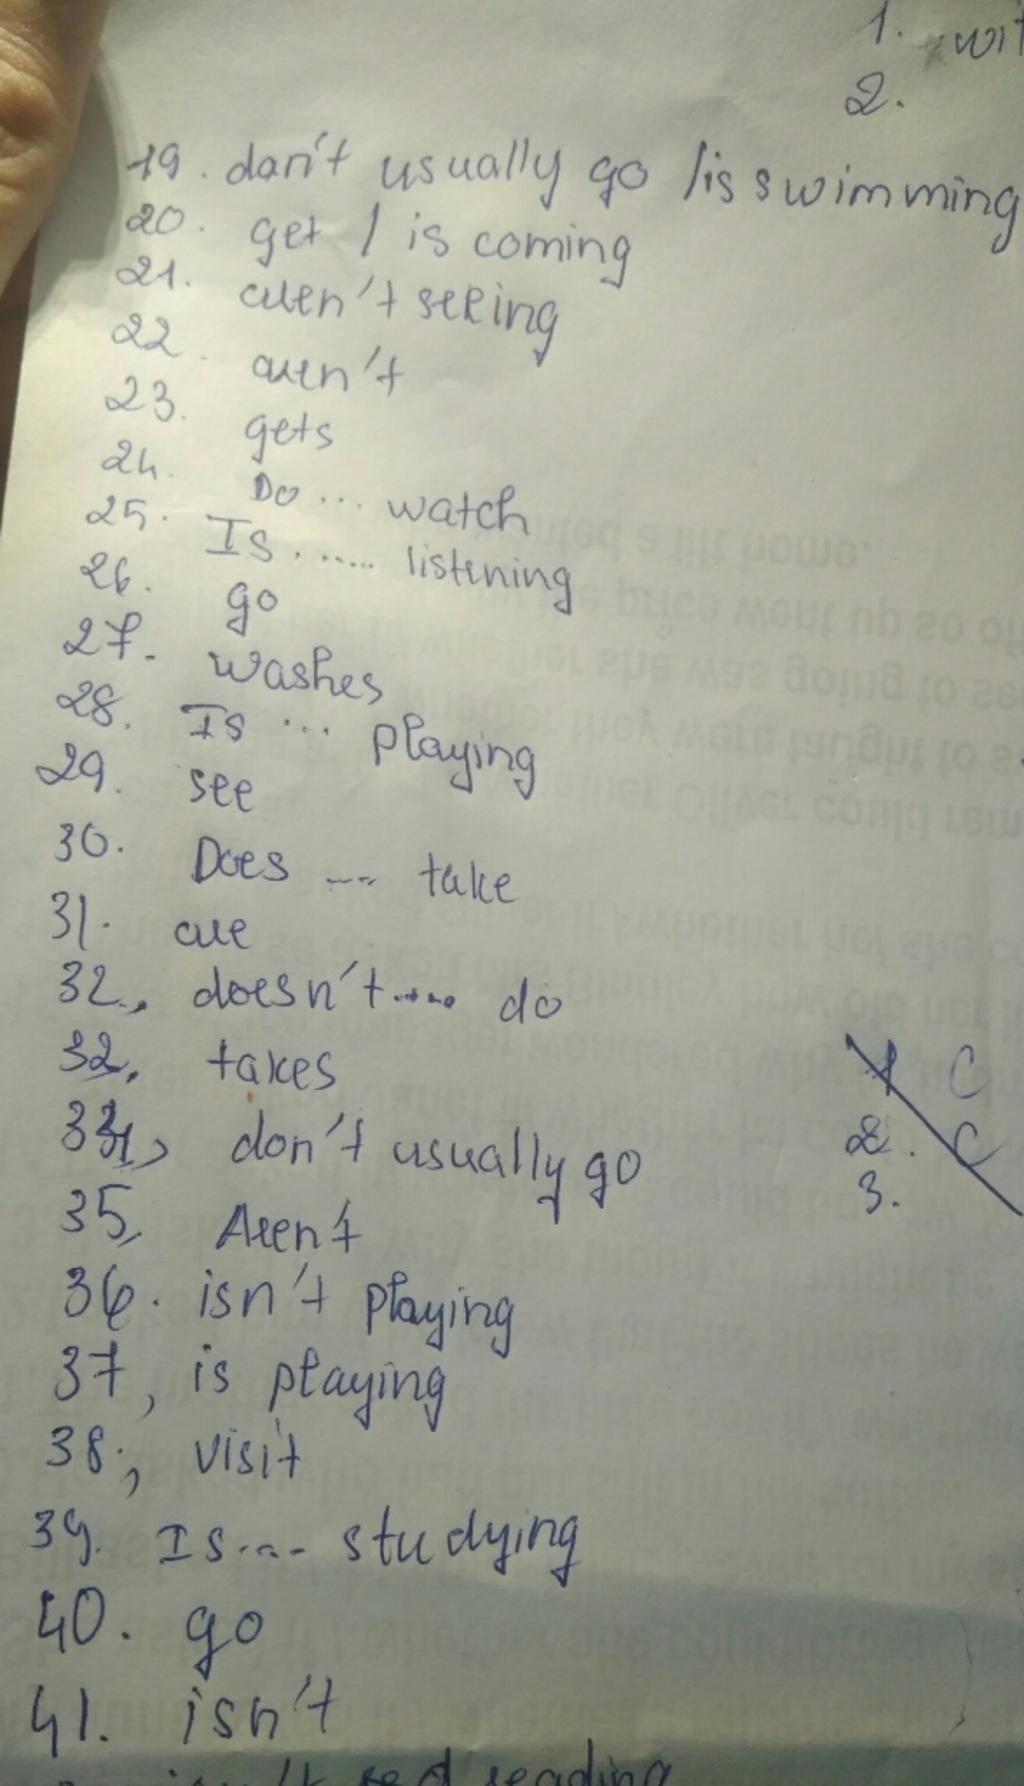 1.
2.
19. don't usually go / is swimming
20. get / is coming
21. aren't seeing
22. aren't
23. gets
24. Do ... watch
25. Is ...... listening
26. go
27. washes
28. Is ... playing
29. see
30. Does --- take
31. are
32. doesn't..... do
32. takes
34, don't usually go
35, Aren't
36. isn't playing
37, is playing
38, visit
39. Is.... studying
40. go
41. isn't
reading
1 C
2. C
3.